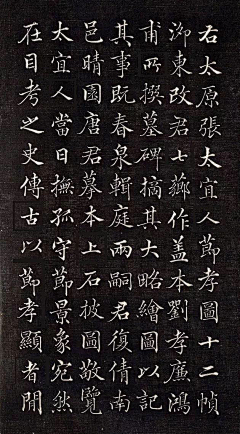 右太原張太宜人節孝圖十二幀
泖東改君七薌作蓋本劉孝廉鴻
甫所撰墓碑摘其大略繪圖以記
其事既春泉輯庭兩嗣君復倩南
邑晴園唐君摹本上石披圖敬覽
太宜人當日撫孤守節景象宛然
在目考之史傳古以節孝顯者